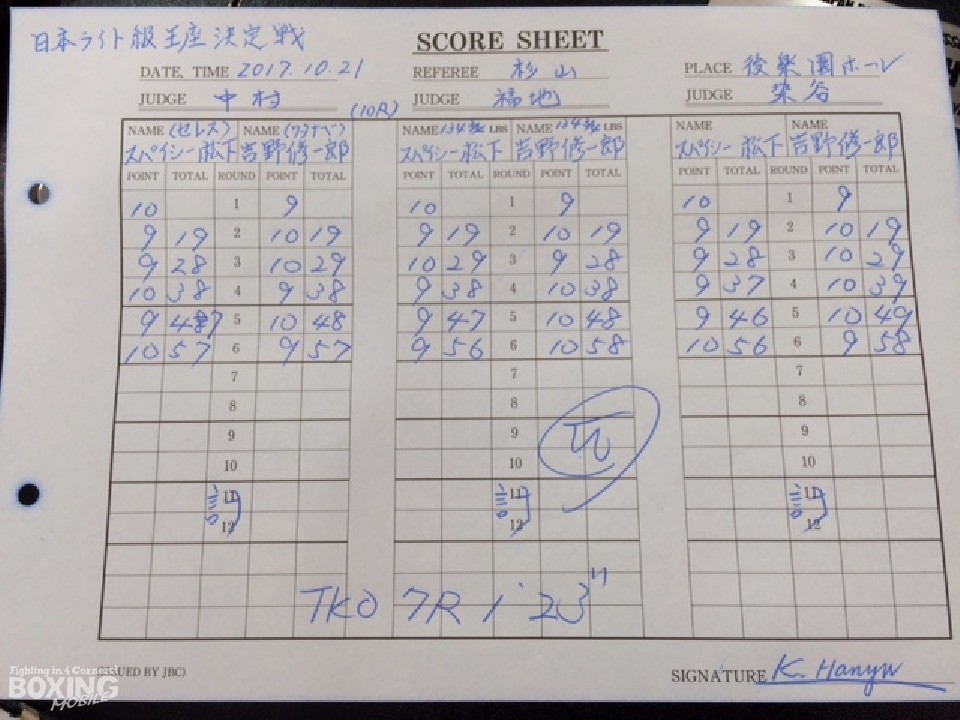 日本ライト級王座決定戦
SCORE SHEET
DATE, TIME 2017.10.21 REFEREE 杉山 PLACE 後楽園ホール
JUDGE 中村 (10R) JUDGE 福地 JUDGE 染谷
NAME (セレス) NAME (ワタナベ) NAME 134 LBS NAME 134 LBS NAME NAME
スパイシー松下 吉野修一郎 スパイシー松下 吉野修一郎 スパイシー松下 吉野修一郎
POINT TOTAL ROUND POINT TOTAL POINT TOTAL ROUND POINT TOTAL POINT TOTAL ROUND POINT TOTAL
10 1 9 10 1 9 10 1 9
9 19 2 10 19 9 19 2 10 19 9 19 2 10 19
9 28 3 10 29 10 29 3 9 28 9 28 3 10 29
10 38 4 9 38 9 38 4 10 38 9 37 4 10 39
9 47 5 10 48 9 47 5 10 48 9 46 5 10 49
10 57 6 9 57 9 56 6 10 58 10 56 6 9 58
7 7 7
8 8 8
9 9 9
10 10 10
11 11 11
12 12 12
TKO 7R 1'23"
ISSUED BY JBC) SIGNATURE K. Hanyu
Fighting in 4 Corners
BOXING
MOBILE